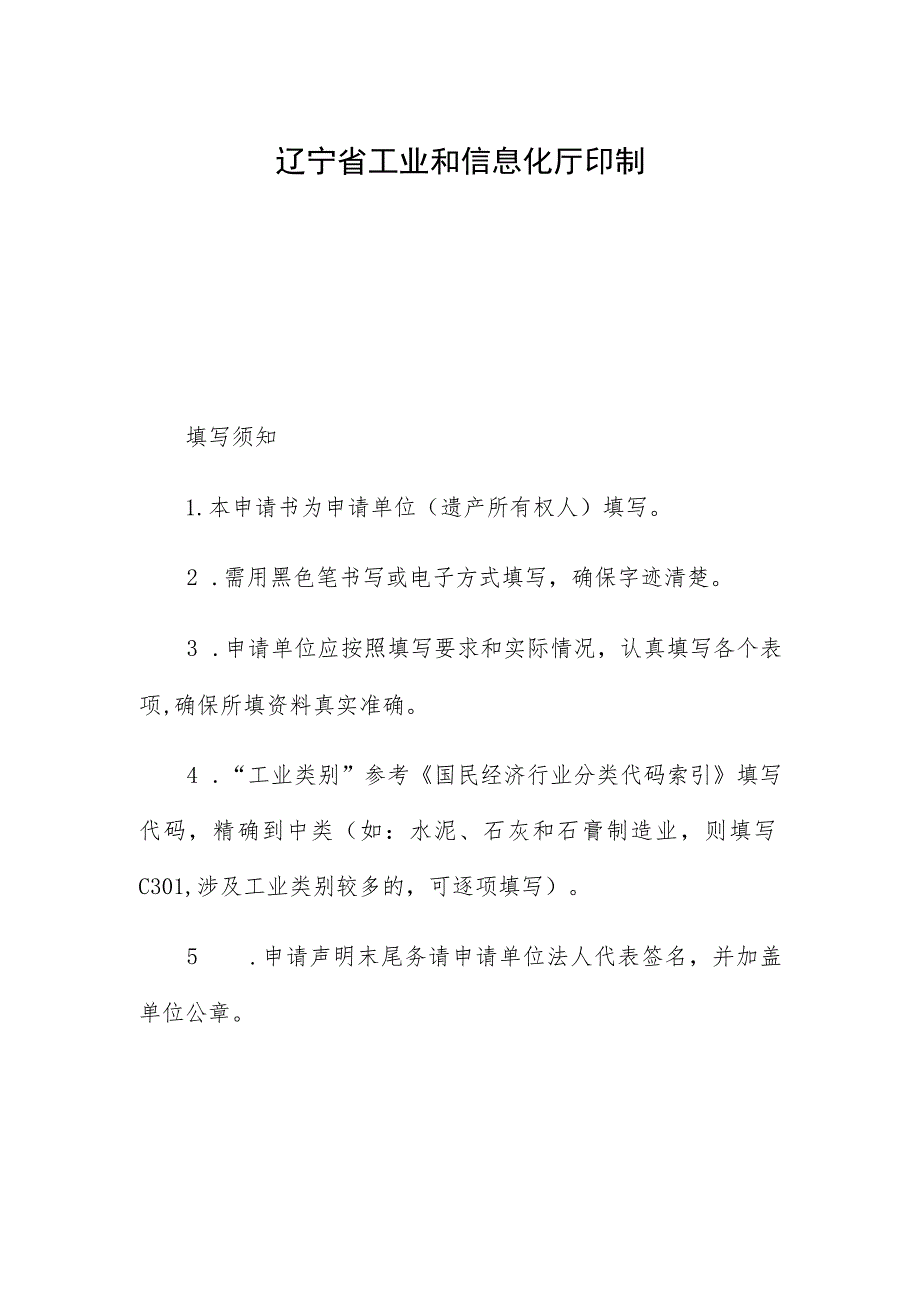 辽宁省工业和信息化厅印制
填写须知
1.本申请书为申请单位（遗产所有权人）填写。
2 .需用黑色笔书写或电子方式填写，确保字迹清楚。
3 .申请单位应按照填写要求和实际情况，认真填写各个表
项,确保所填资料真实准确。
4 .“工业类别”参考《国民经济行业分类代码索引》填写
代码，精确到中类（如：水泥、石灰和石膏制造业，则填写
C301,涉及工业类别较多的，可逐项填写）。
5 .申请声明末尾务请申请单位法人代表签名，并加盖
单位公章。